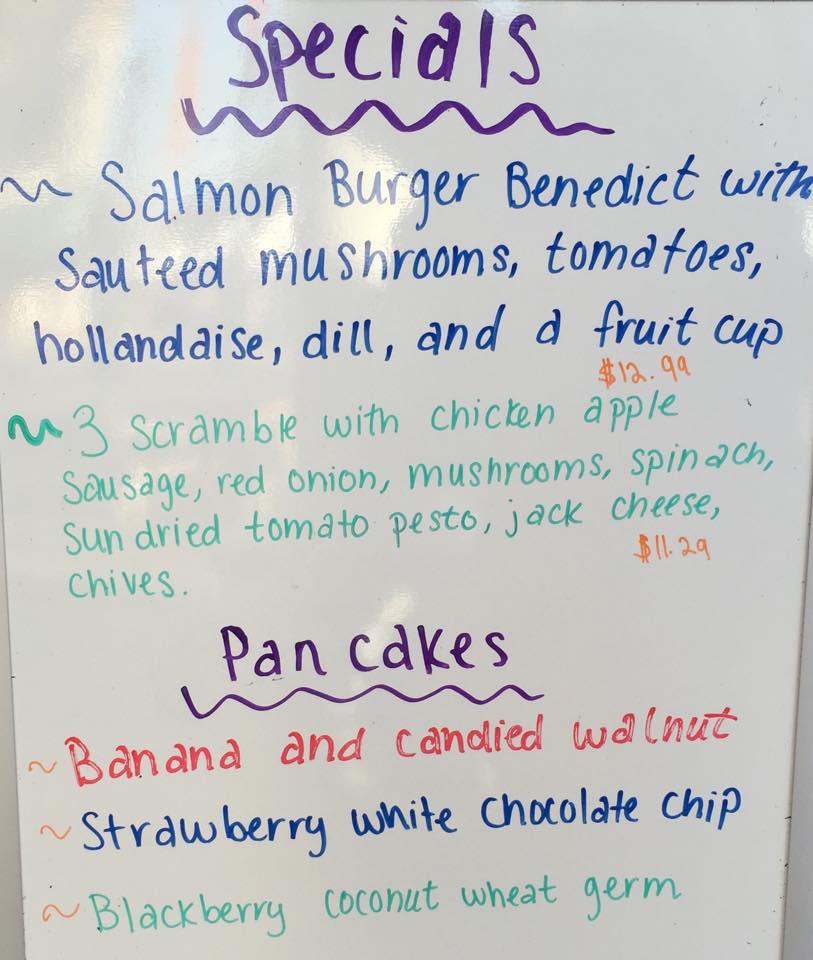 Specials
~ Salmon Burger Benedict with
Sauteed mushrooms, tomatoes,
hollandaise, dill, and a fruit cup
$12.99
~ 3 scramble with chicken apple
Sausage, red onion, mushrooms, spinach,
Sun dried tomato pesto, jack cheese,
$11.29
Chives.
Pancakes
~ Banana and candied walnut
~ Strawberry white chocolate chip
~ Blackberry coconut wheat germ